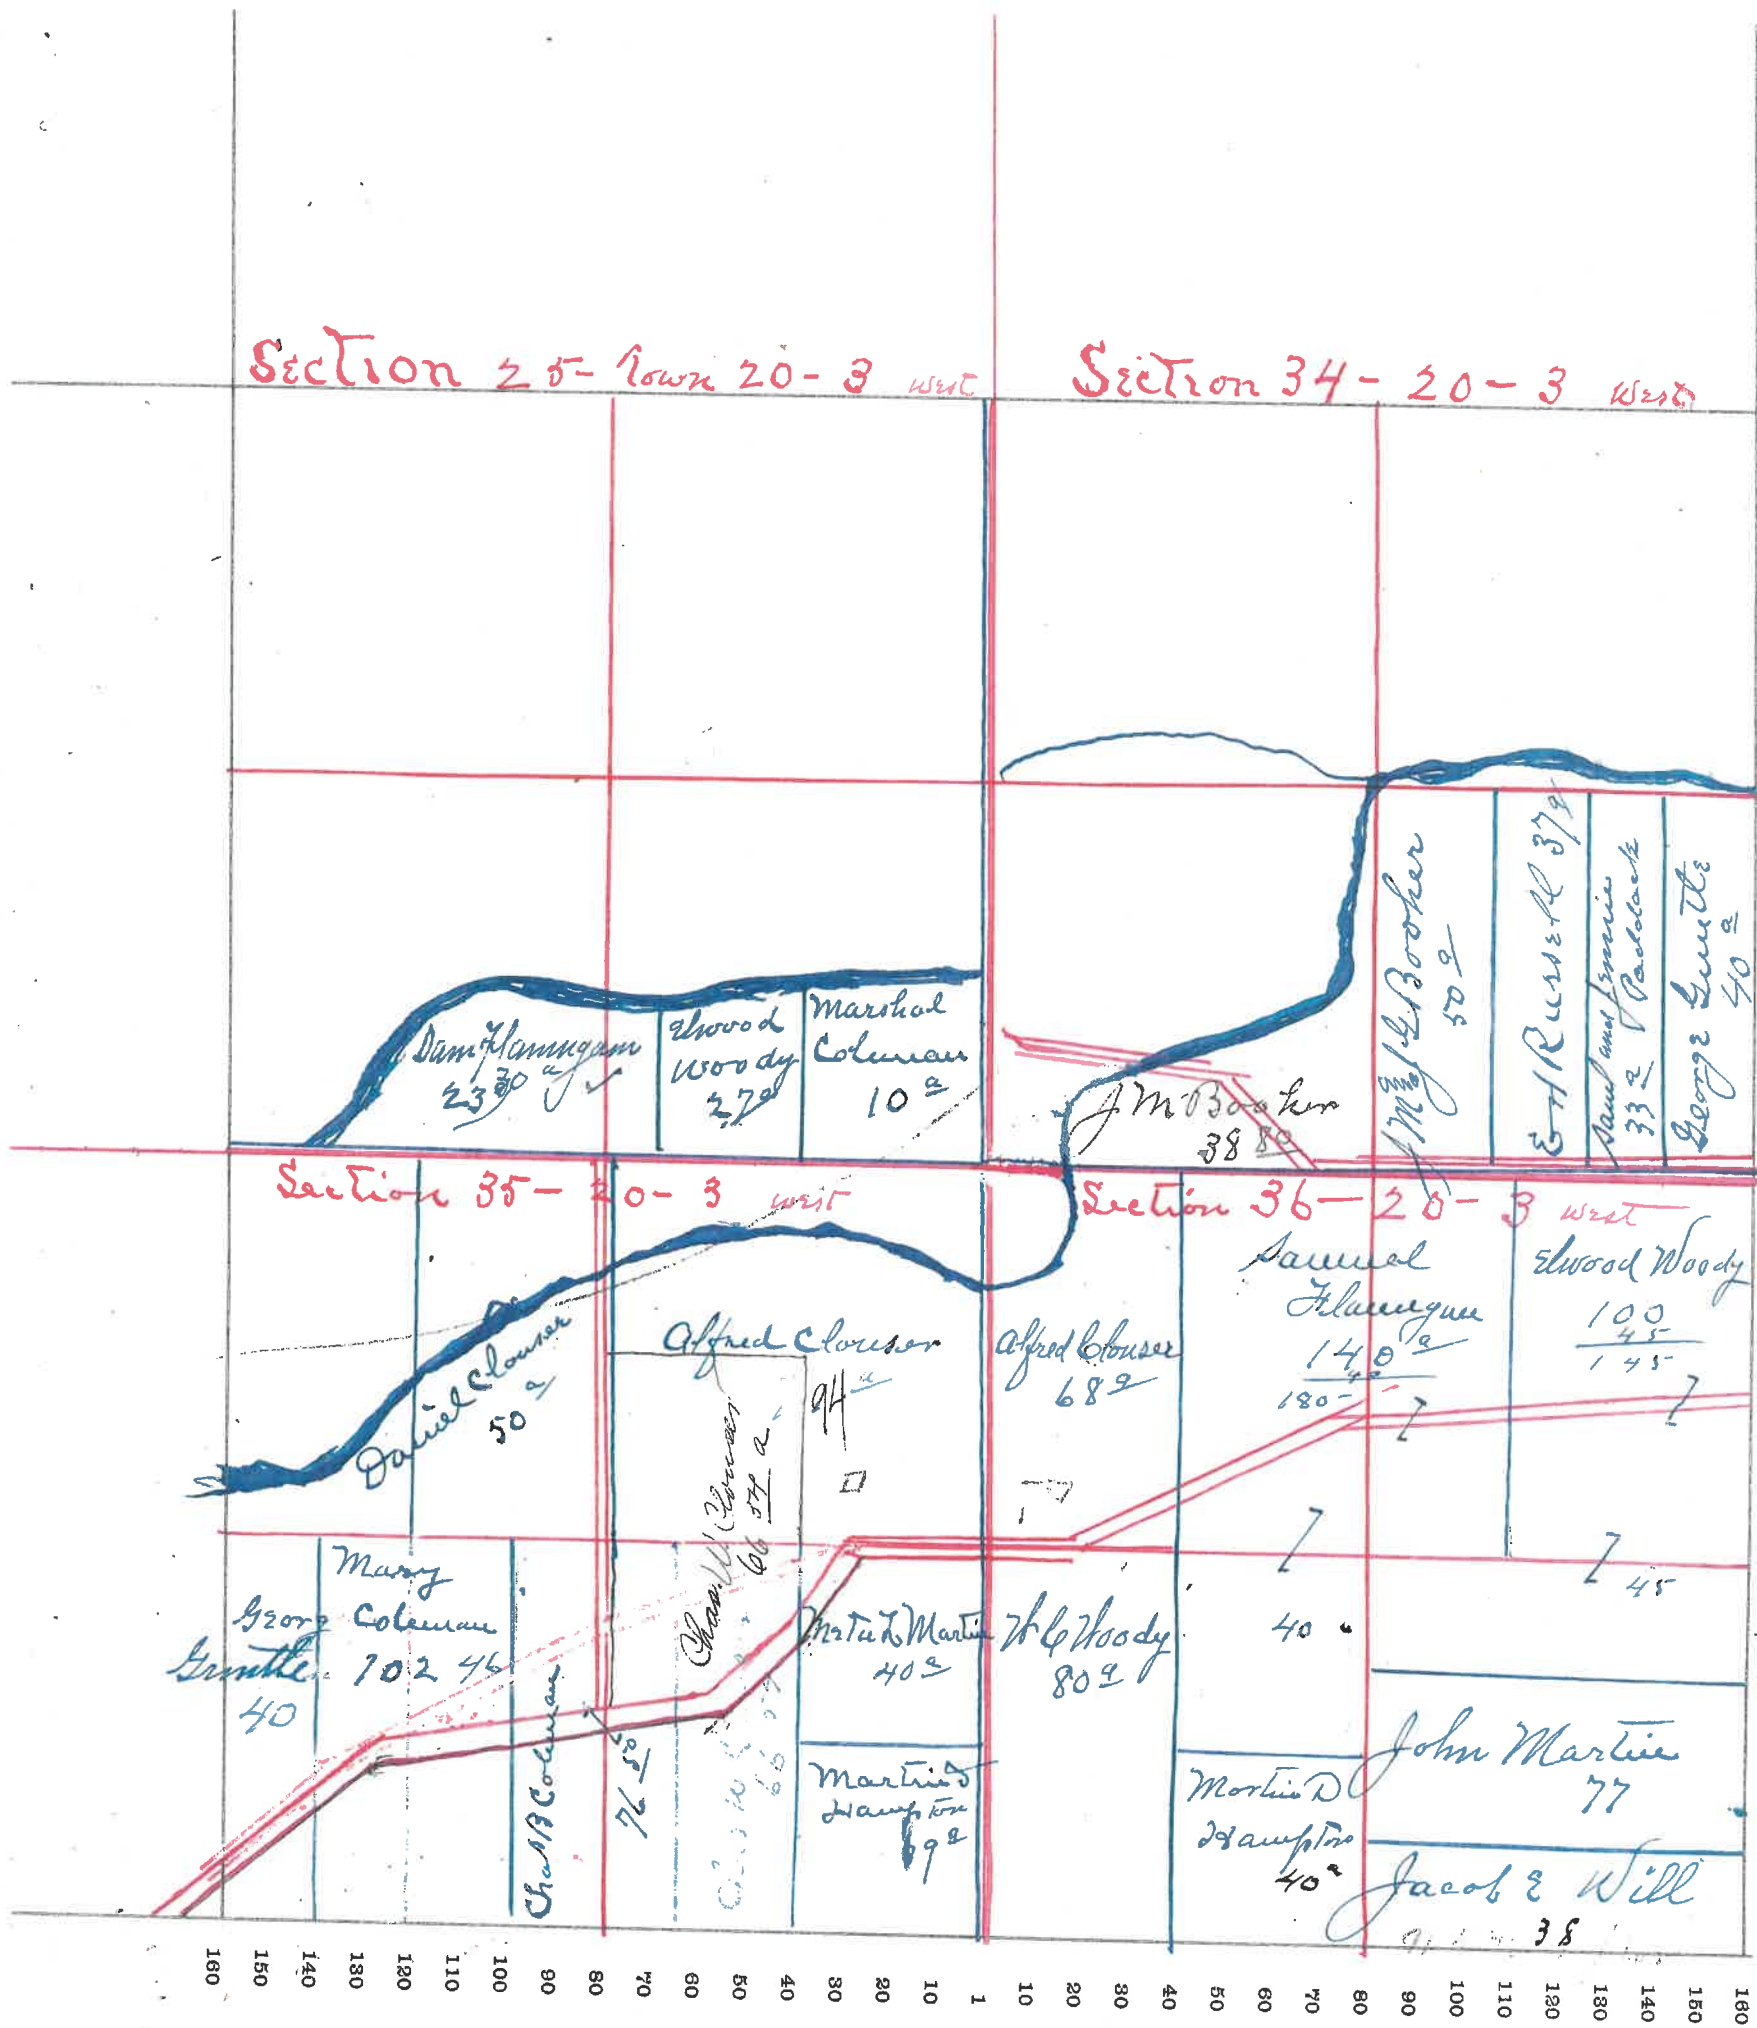 Section 25 - Town 20 - 3 west
Section 34 - 20 - 3 West
Dan Flannigam
23 30 a
Elwood
Woody
27 a
Marshal
Coleman
10 a
J M Booher
38 80
J M & E E Booher
50 a
Ed Russell 37 a
Samuel and Jennie
Paddack
33 a
George Gruttle
40 a
Section 35 - 20 - 3 west
Section 36 - 20 - 3 west
Daniel Clouser
50 a
Alfred Clouser
94 a
Chas. W Clouser
66 54 a
Alfred Clouser
68 a
Samuel
Flannigan
140 a
40
180 -
Elwood Woody
100
45
145
George
40
Mary
Coleman
102 46
Chas B Coleman
76 50
L Martin
40 a
Martin D
Hampton
19 a
W C Woody
80 a
40 a
45
Martin D
Hampton
40 a
John Martin
77
Jacob E Will
38
160 150 140 130 120 110 100 90 80 70 60 50 40 30 20 10 1 10 20 30 40 50 60 70 80 90 100 110 120 130 140 150 160